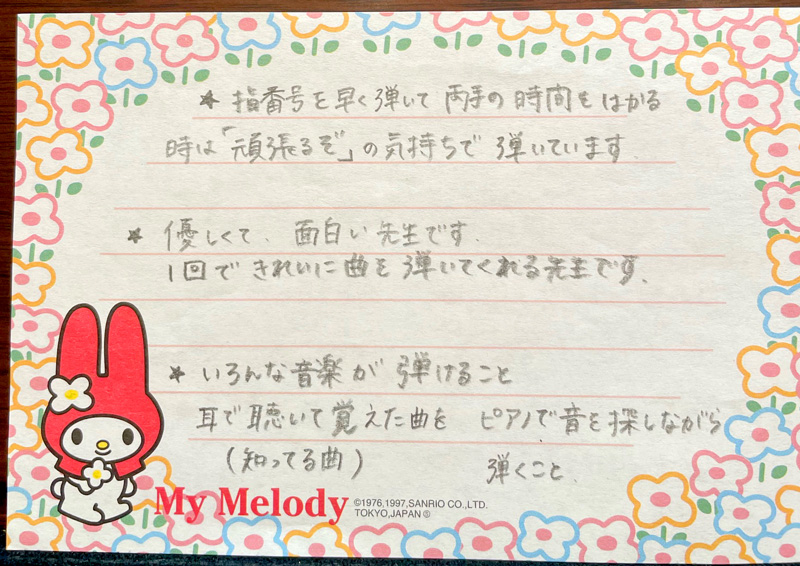 * 指番号を早く弾いて 両手の時間をはかる
時は「頑張るぞ」の気持ちで 弾いています.
* 優しくて、面白い先生です.
1回できれいに曲を弾いてくれる先生です.
* いろんな音楽が弾けること
耳で聴いて覚えた曲を ピアノで音を探しながら
(知ってる曲) 弾くこと.
My Melody
©1976,1997,SANRIO CO.,LTD.
TOKYO,JAPAN Ⓢ